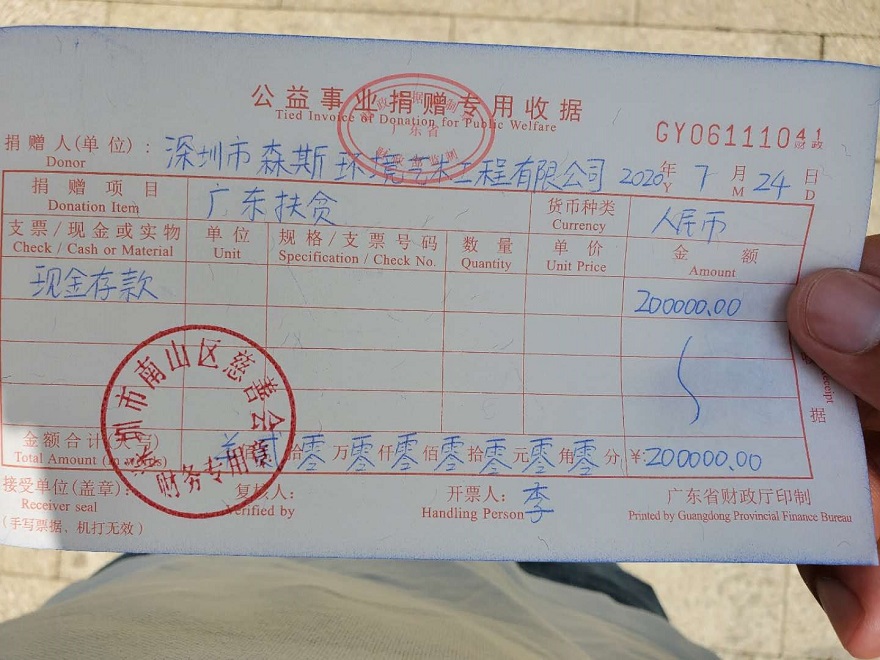 公益事业捐赠专用收据
Tied Invoice of Donation for Public Welfare
GY06111041
财政
捐赠人(单位): 深圳市森斯环境艺术工程有限公司 2020年 7月 24日
Donor Y M D
捐赠项目 广东扶贫 货币种类 人民币
Donation Item Currency
支票/现金或实物 单位 规格/支票号码 数量 单价 金额
Check / Cash or Material Unit Specification / Check No. Quantity Unit Price Amount
现金存款 200000.00
深圳市南山区慈善会
财务专用章
金额合计(大写) 贰拾零万零仟零佰零拾零元零角零分 ¥:200000.00
Total Amount (in words)
接受单位(盖章): 复核人: 开票人: 李 广东省财政厅印制
Receiver seal Verified by Handling Person Printed by Guangdong Provincial Finance Bureau
(手写票据、机打无效)
据